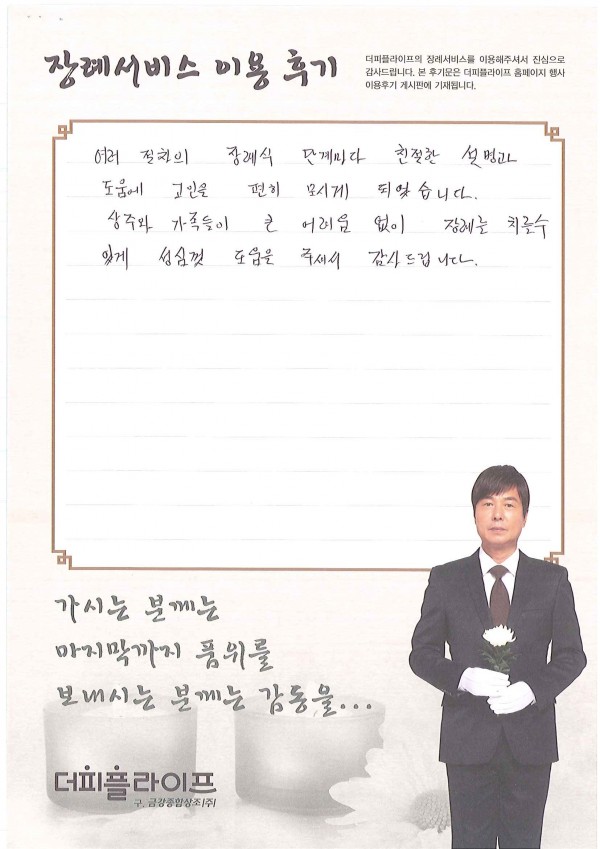 장례서비스 이용 후기
더피플라이프의 장례서비스를 이용해주셔서 진심으로
감사드립니다. 본 후기문은 더피플라이프 홈페이지 행사
이용후기 게시판에 기재됩니다.
여러 절차의 장례식 단계마다 친절한 설명과
도움에 고인을 편히 모시게 되었습니다.
상주와 가족들이 큰 어려움 없이 장례를 치를수
있게 성심껏 도움을 주셔서 감사드립니다.
가시는 분께는
마지막까지 품위를
보내시는 분께는 감동을...
더피플라이프
구. 금강종합상조(주)